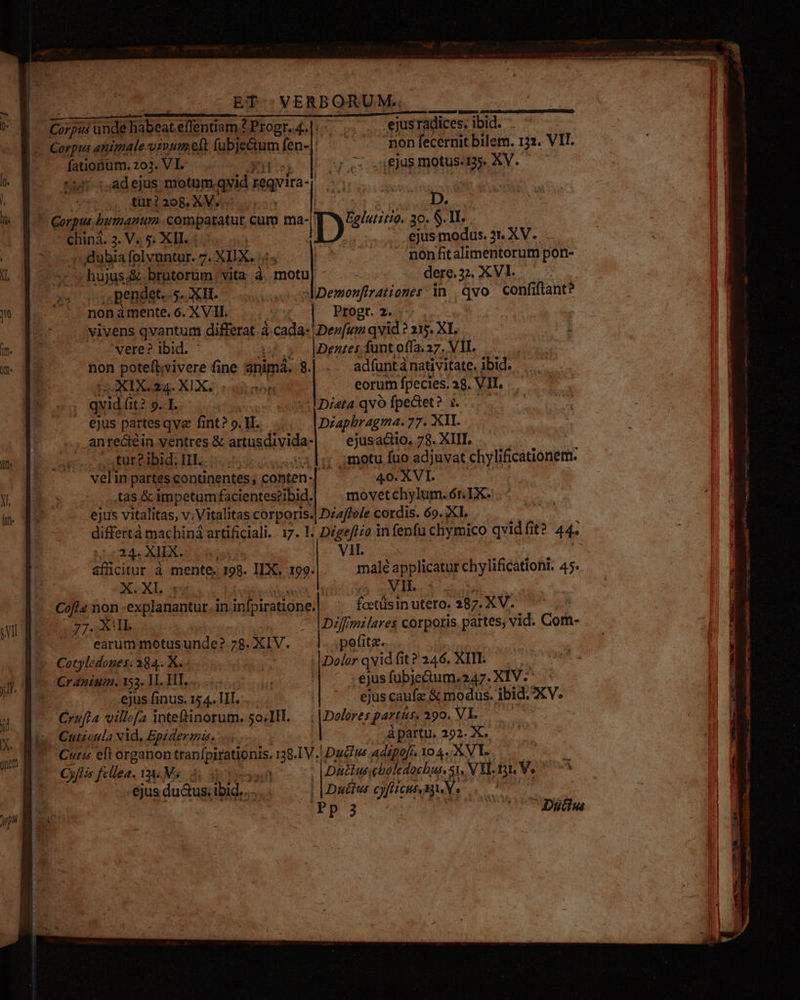 ET VERBORUM.
Corpus unde habeat essentiam? Progr. 4.
Corpus animale vivum est subjectum sen-
sationum. 203. VI.
ad ejus motum qvid reqvira-
tur? 208. XV.
Corpus humanum comparatur cum ma-
chinâ. 3. V. 5. XII.
dubia solvuntur. 7. XIIX.
hujus & brutorum vita à motu
pendet. 5. XII.
non à mente. 6. XVII.
vivens qvantum differat à cada-
vere? ibid.
non potest vivere sine animâ. 8.
XIX. 24. XIX.
qvid sit? 9. I.
ejus partes qvæ sint? 9. II.
an rectè in ventres & artus divida-
tur? ibid. III.
vel in partes continentes, conten-
tas & impetum facientes? ibid.
ejus vitalitas, v. Vitalitas corporis.
differt à machinâ artificiali. 17. I.
24. XIIX.
afficitur à mente. 198. IIX. 199.
X. XI.
Costæ non explanantur in inspiratione.
77. XII.
earum motus unde? 78. XIV.
Cotyledones. 284. X.
Cranium. 153. II. III.
ejus sinus. 154. III.
Crusta villosa intestinorum. 50. III.
Cuticula vid. Epidermis.
Cutis est organon transpirationis. 138. IV.
Cystis fellea. 131. V.
ejus ductus. ibid.
ejus radices. ibid.
non secernit bilem. 132. VII.
ejus motus. 135. XV.
D.
Deglutitio. 30. §. II.
ejus modus. 31. XV.
non fit alimentorum pon-
dere. 32. XVI.
Demonstrationes in qvo consistant?
Progr. 2.
Densum qvid? 215. XI.
Dentes sunt ossa. 27. VII.
adsunt à nativitate. ibid.
eorum species. 28. VII.
Diæta qvò spectet? 1.
Diaphragma. 77. XII.
ejus actio. 78. XIII.
motu suo adjuvat chylificationem.
40. XVI.
movet chylum. 61. IX.
Diastole cordis. 69. XI.
Digestio in sensu chymico qvid sit? 44.
VII.
malè applicatur chylificationi. 45.
VII.
fœtûs in utero. 287. XV.
Dissimilares corporis partes, vid. Com-
positæ.
Dolor qvid sit? 246. XIII.
ejus subjectum. 247. XIV.
ejus causæ & modus. ibid. XV.
Dolores partûs. 290. VI.
à partu. 292. X.
Ductus adiposi. 104. XVI.
Ductus choledochus. 51. VII. 131. V.
Ductus cysticus. 131. V.
Pp 3
Ductus